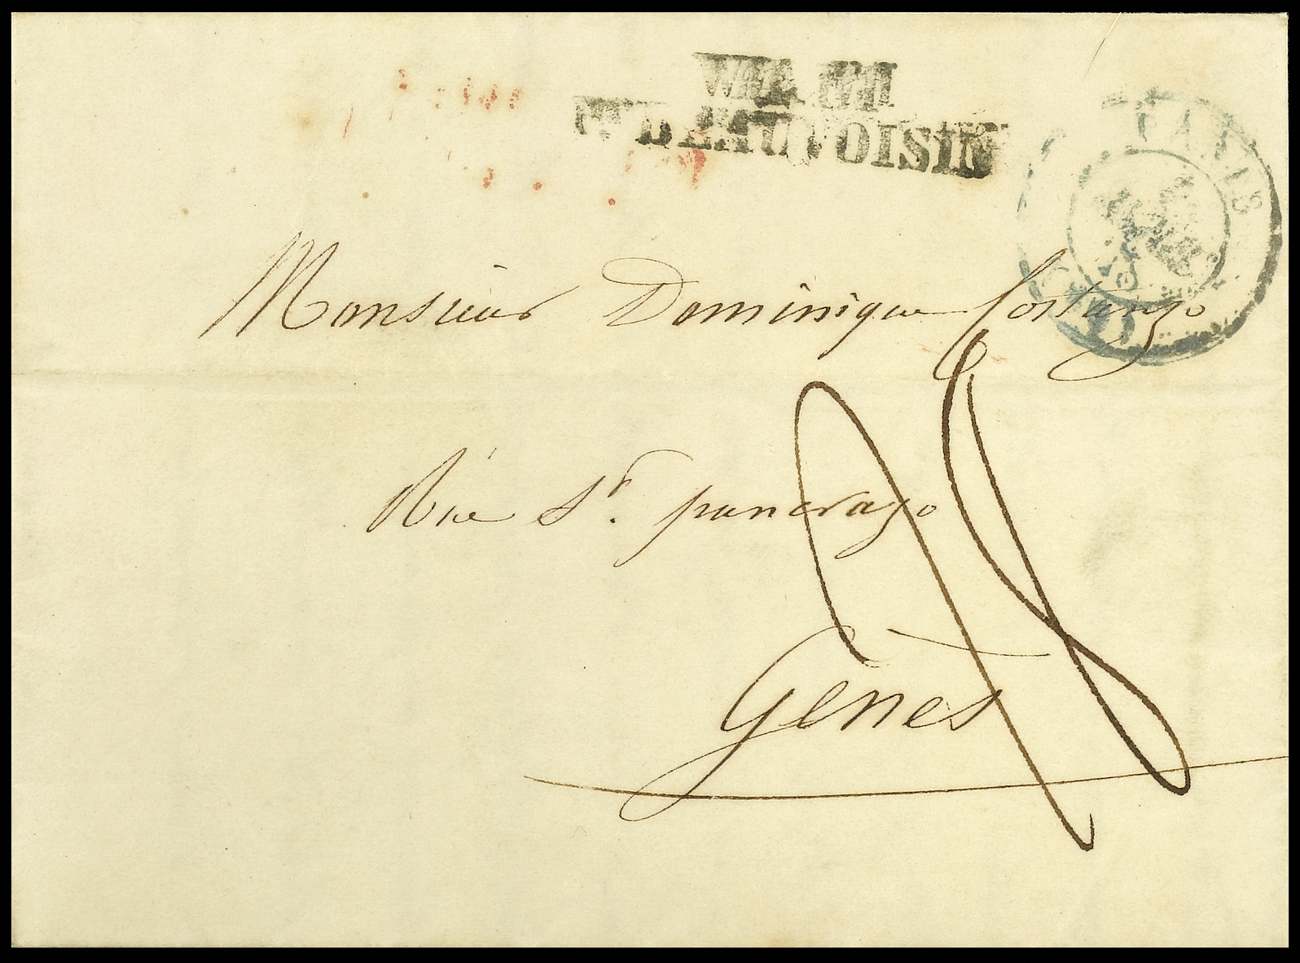 VIA DI
PT BEAUVOISIN
PARIS
Monsieur Dominique Costanzo
Rue St. pancrazo
Gênes